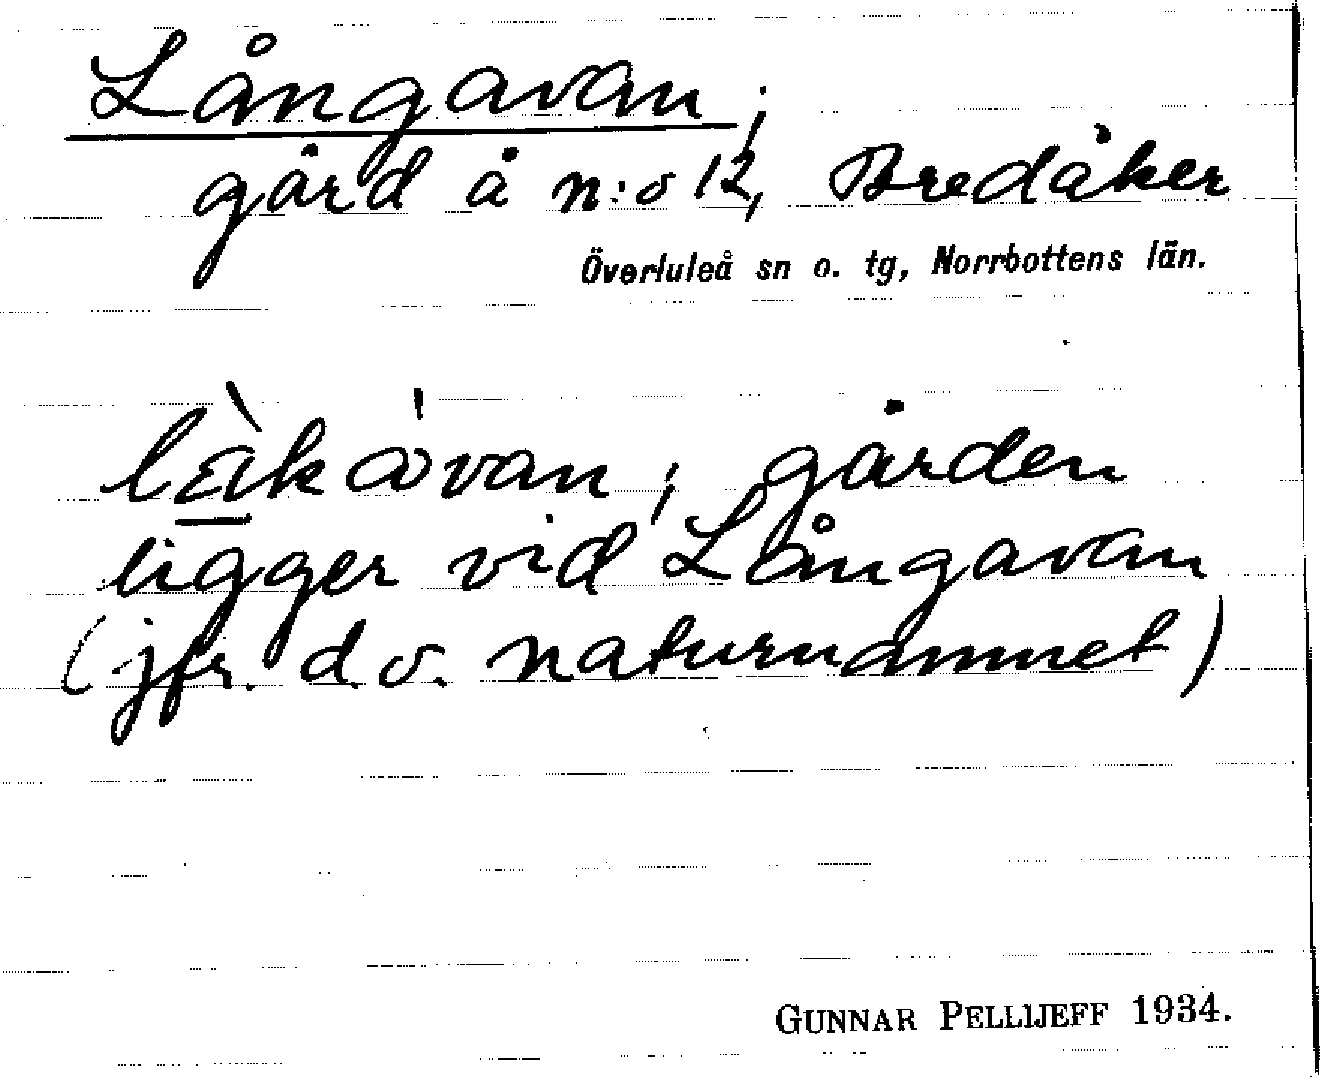 Långavan;
gård å n:o 12, Bredåker
Överluleå sn o. tg, Norrbottens län.
gården
ligger vid Långavan
(jfr. d.o. naturnamnet)
GUNNAR PELLIJEFF 1934.